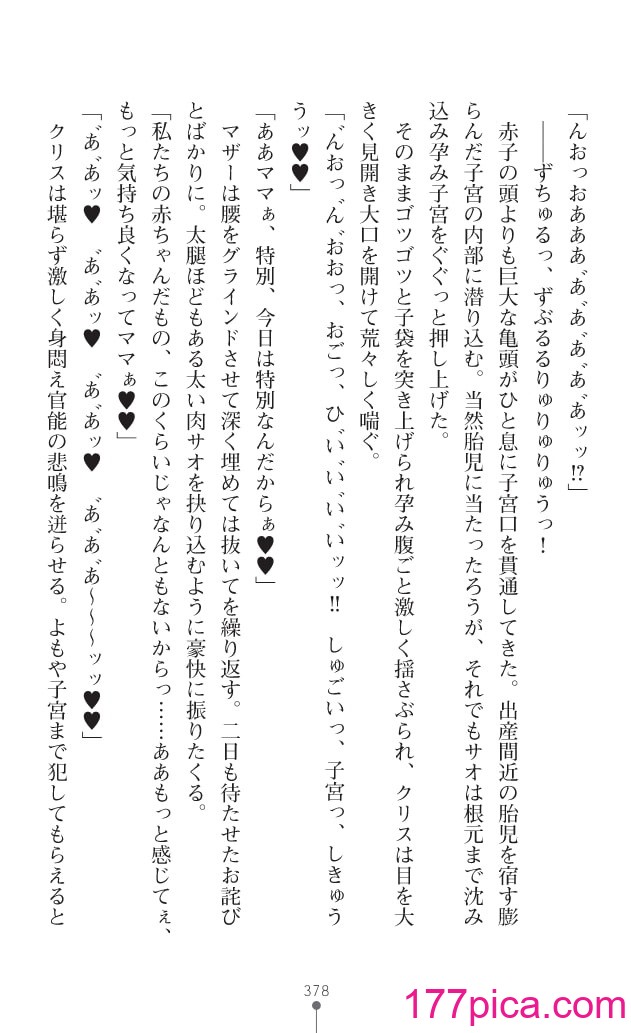 「んおっおあああ゛あ゛あ゛あ゛あ゛ッッ!?」
――ずちゅるっ、ずぶるるりゅりゅりゅうっ！
赤子の頭よりも巨大な亀頭がひと息に子宮口を貫通してきた。出産間近の胎児を宿す膨
らんだ子宮の内部に潜り込む。当然胎児に当たったろうが、それでもサオは根元まで沈み
込み孕み子宮をぐぐっと押し上げた。
そのままゴツゴツと子袋を突き上げられ孕み腹ごと激しく揺さぶられ、クリスは目を大
きく見開き大口を開けて荒々しく喘ぐ。
「ん゛おっん゛お゛おっ、おごっ、ひ゛い゛い゛い゛いッッ!!　しゅごいっ、子宮っ、しきゅう
うッ♥♥」
「ああママぁ、特別、今日は特別なんだからぁ♥♥」
マザーは腰をグラインドさせて深く埋めては抜いてを繰り返す。二日も待たせたお詫び
とばかりに。太腿ほどもある太い肉サオを抉り込むように豪快に振りたくる。
「私たちの赤ちゃんだもの、このくらいじゃなんともないからっ……ああもっと感じてぇ、
もっと気持ち良くなってママぁ♥♥」
「あ゛あ゛あッ♥　あ゛あ゛あッ♥　あ゛あ゛あッ♥　あ゛あ゛あ゛～～～ッッ♥♥」
クリスは堪らず激しく身悶え官能の悲鳴を迸らせる。よもや子宮まで犯してもらえると
378
177pica.com